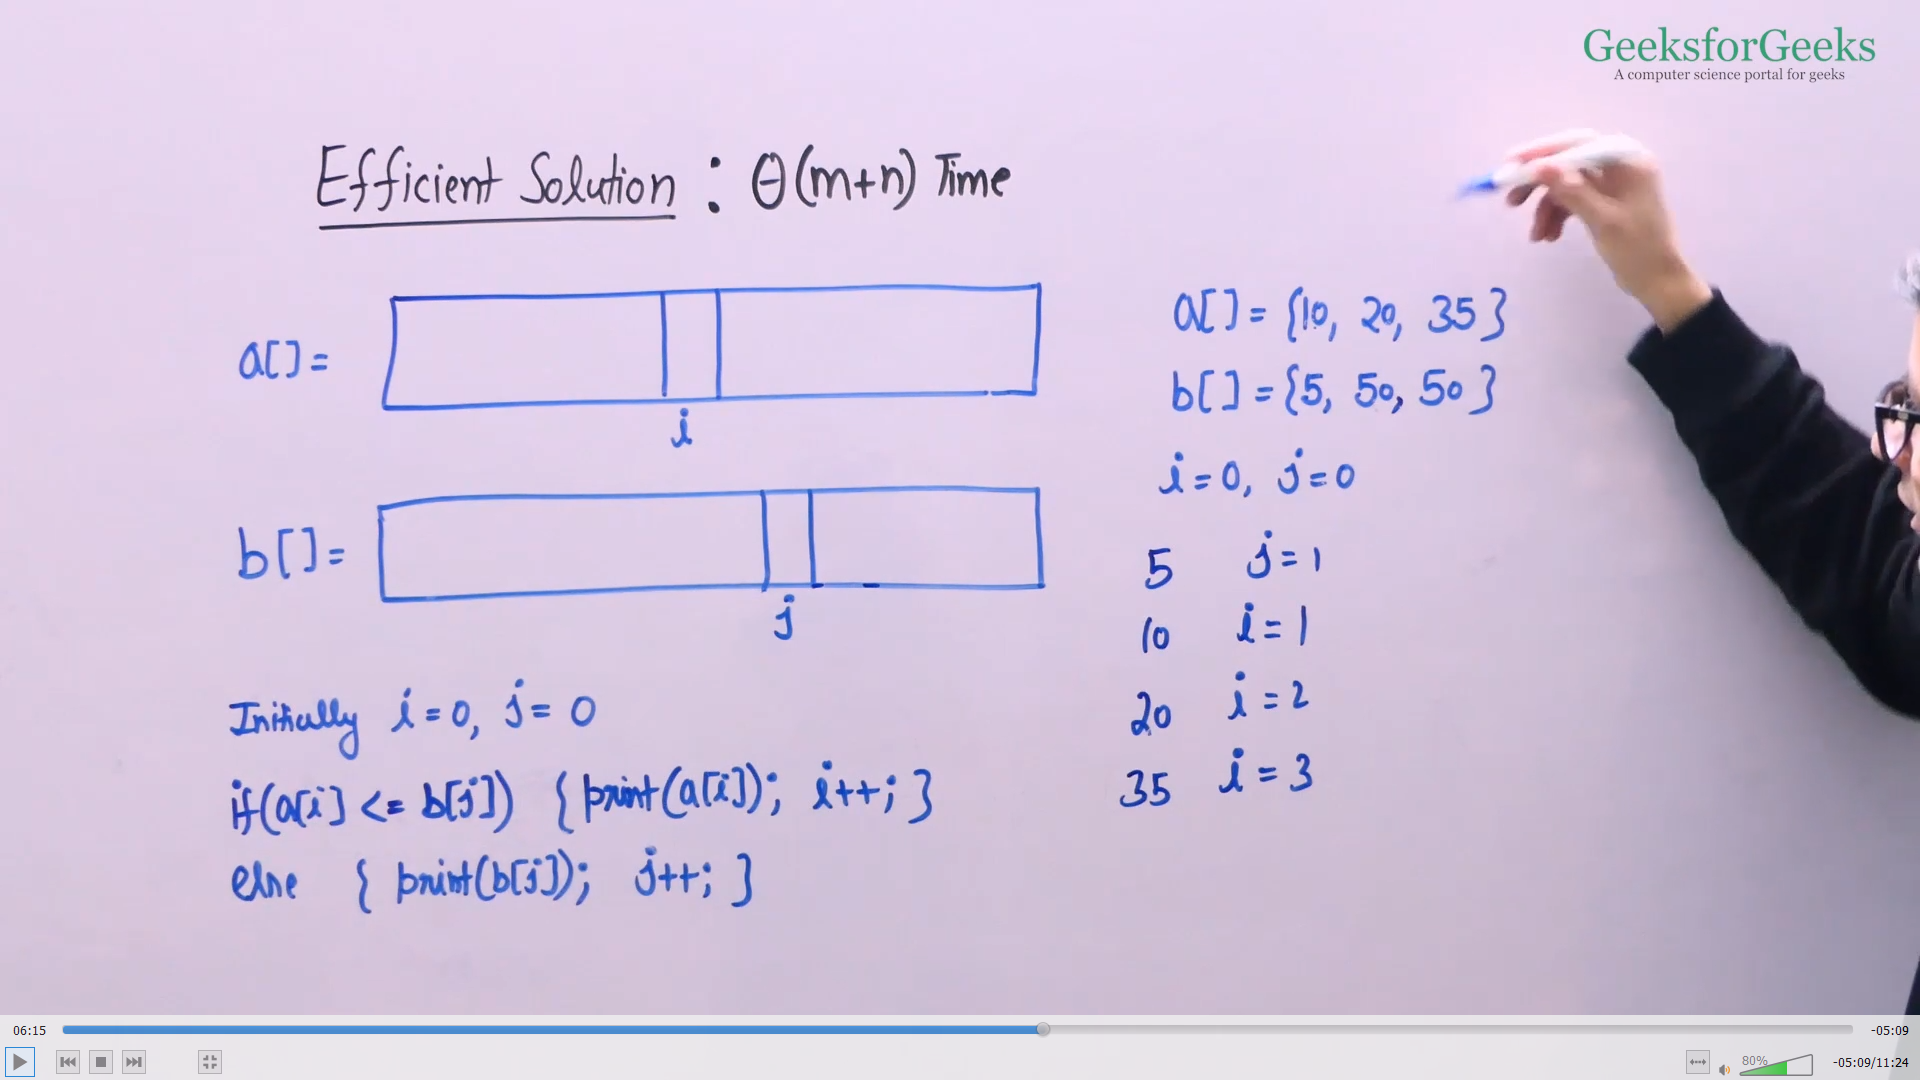 GeeksforGeeks
A computer science portal for geeks
Efficient Solution : θ(m+n) Time
a[] =
i
b[] =
j
Initially i = 0, j = 0
if(a[i] <= b[j]) { print(a[i]); i++; }
else { print(b[j]); j++; }
a[] = {10, 20, 35}
b[] = {5, 50, 50}
i = 0, j = 0
5 j = 1
10 i = 1
20 i = 2
35 i = 3
06:15
-05:09
80%
-05:09/11:24